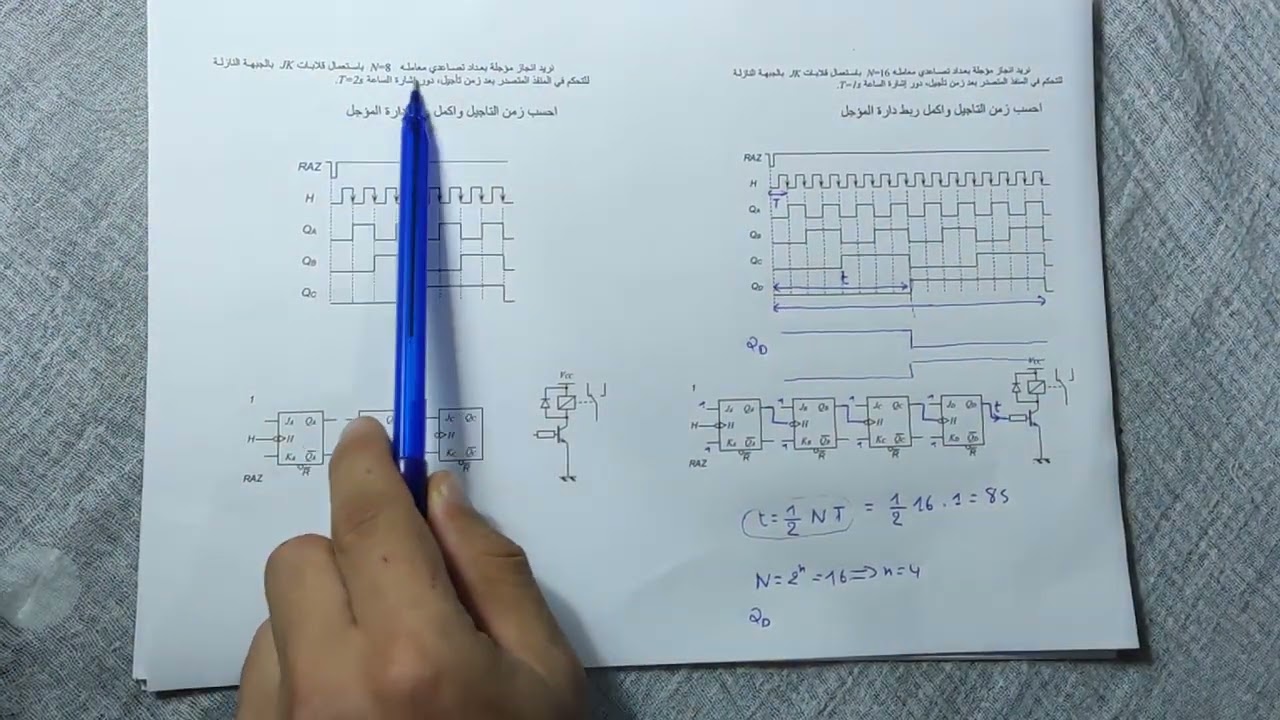 نريد انجاز مؤجلة بعداد تصاعدي معامله N=8 باستعمال قلابات JK بالجبهة النازلة
للتحكم في المنفذ المتصدر بعد زمن تأجيل، دور إشارة الساعة T=2s.
احسب زمن التاجيل واكمل دارة المؤجل
RAZ
H
QA
QB
QC
1
JA QA
H H
KA QA
R
JC QC
H
KC QC
R
RAZ
Vcc
نريد انجاز مؤجلة بعداد تصاعدي معامله N=16 باستعمال قلابات JK بالجبهة النازلة
للتحكم في المنفذ المتصدر بعد زمن تأجيل، دور إشارة الساعة T=1s.
احسب زمن التاجيل واكمل ربط دارة المؤجل
RAZ
H
T
QA
QB
QC
t
QD
QD
Vcc
1
1 JA QA 1 JB QB 1 JC QC 1 JD QD t
H H H H H
1 KA Q̅A 1 KB Q̅B 1 KC Q̅C 1 KD Q̅D
R R R R
RAZ
t = 1/2 N T = 1/2 16 . 1 = 8s
N = 2ⁿ = 16 ⇒ n = 4
QD